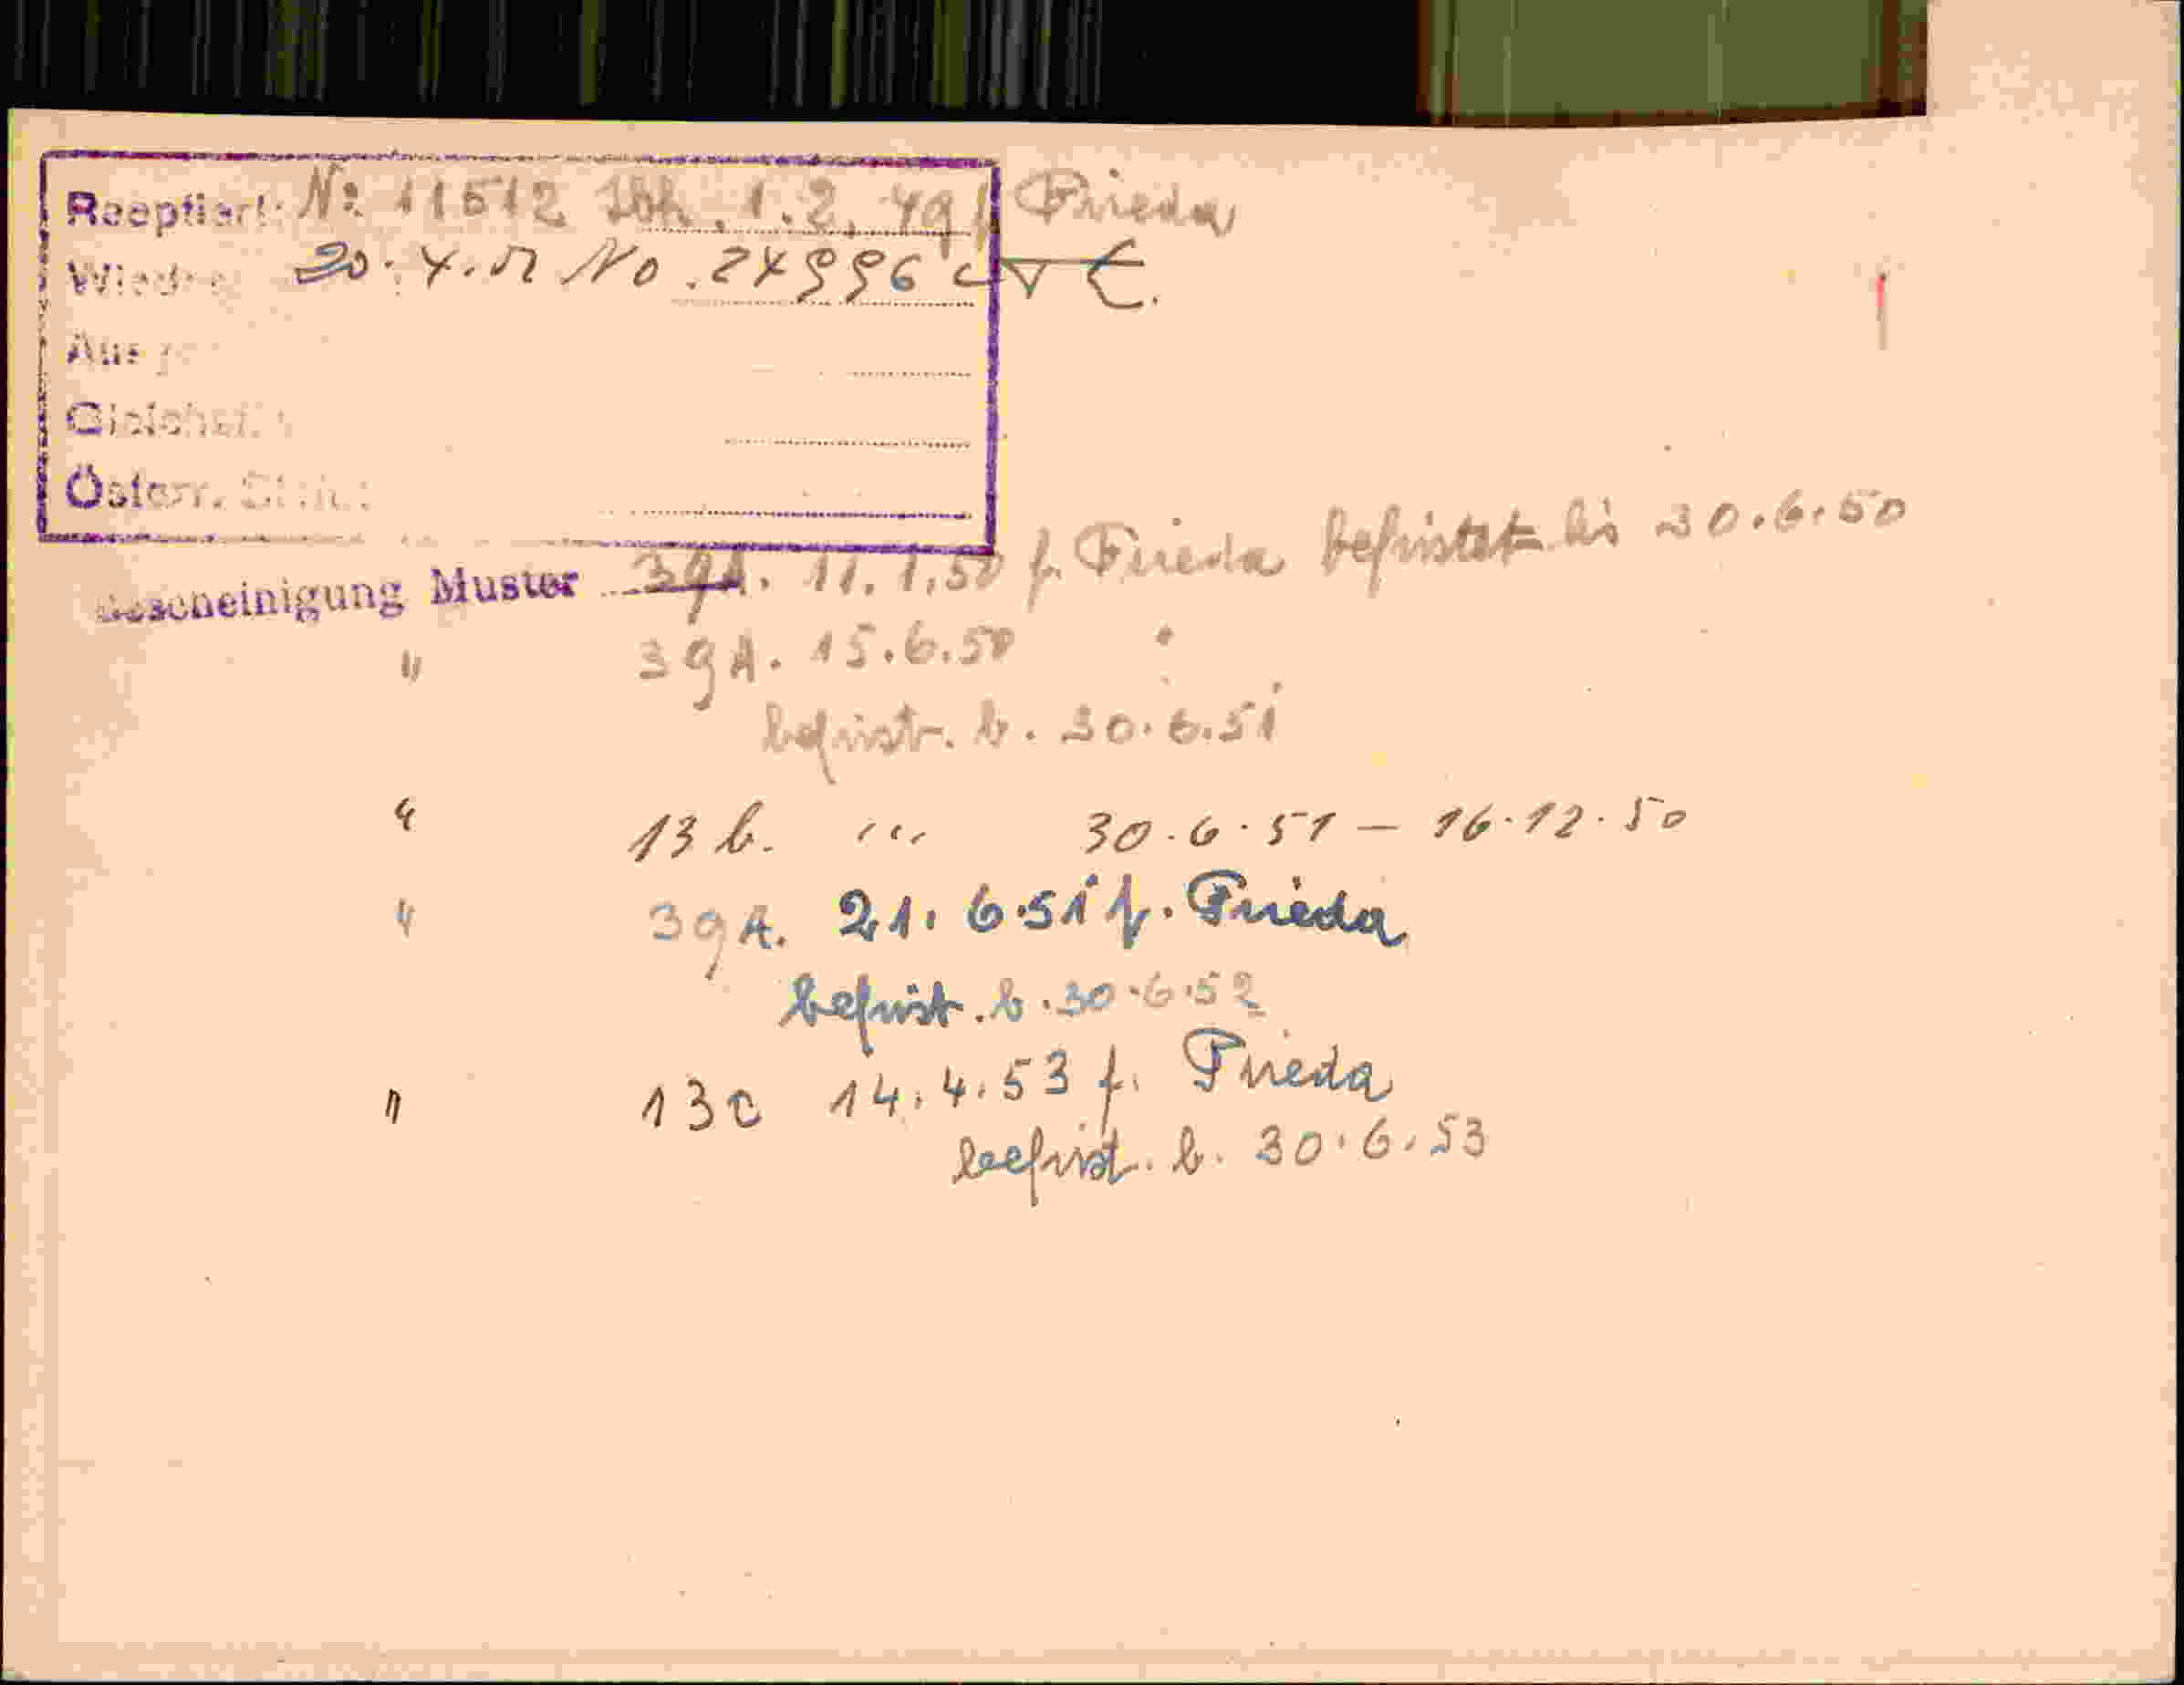 Reeptiert: No 11512 1.2.49 f. Frieda
20.4.51 No. 24996
Gleichst.
Österr. St
Bescheinigung Muster 39A. 11.1.50 f. Frieda befristet bis 30.6.50
" 39A. 15.6.50
befrist. b. 30.6.51
" 13 b. """ 30.6.51 – 16.12.50
" 39A. 21.6.51 f. Frieda
befrist. b. 30.6.52
" 13c 14.4.53 f. Frieda
befrist. b. 30.6.53